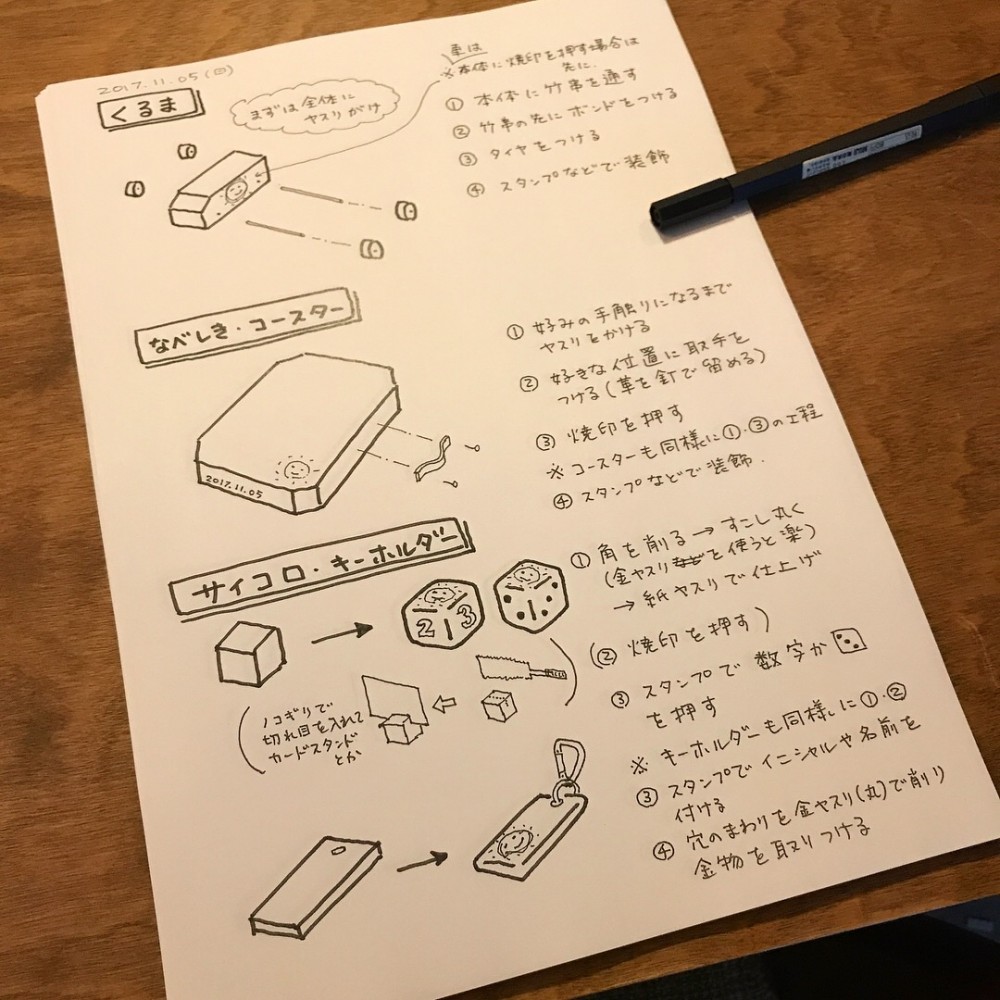 2017.11.05(日)
くるま
まずは全体に
ヤスリがけ
車は
※本体に焼印を押す場合は
先に.
① 本体に竹串を通す
② 竹串の先にボンドをつける
③ タイヤをつける
④ スタンプなどで装飾
なべしき・コースター
2017.11.05
① 好みの手触りになるまで
ヤスリをかける
② 好きな位置に取手を
つける(革を釘で留める)
③ 焼印を押す
※ コースターも同様に①・③の工程
④ スタンプなどで装飾.
サイコロ・キーホルダー
2 3
(ノコギリで
切れ目を入れて
カードスタンド
とか)
① 角を削る→すこし丸く
(金ヤスリを使うと楽)
→紙ヤスリで仕上げ
(② 焼印を押す)
③ スタンプで数字か
を押す
※ キーホルダーも同様に①・②
③ スタンプでイニシャルや名前を
付ける
④ 穴のまわりを金ヤスリ(丸)で削り
金物を取りつける